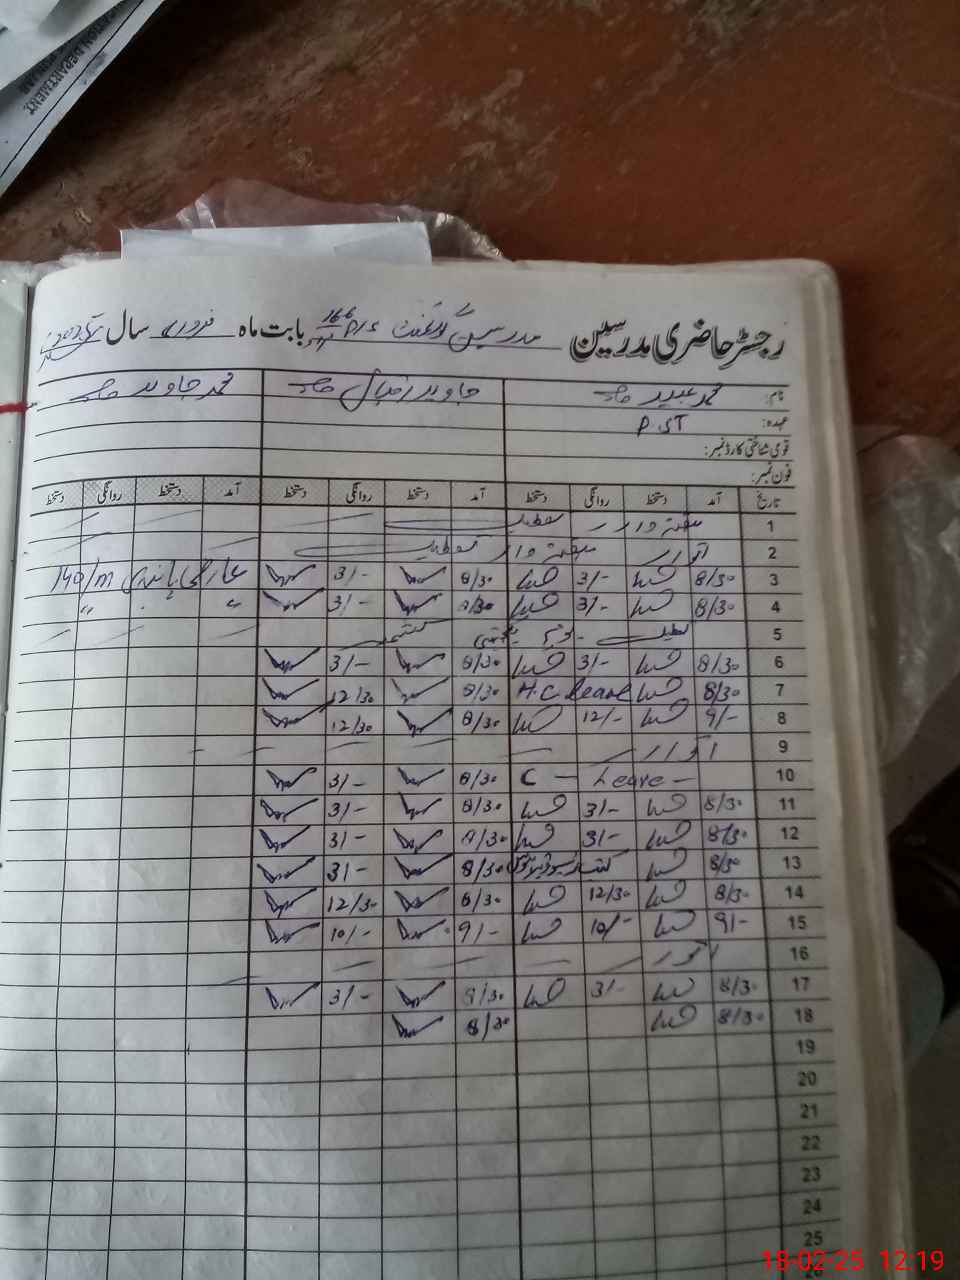 ION DEPARTMENT
رجسٹر حاضری مدرسین مدرسین گورنمنٹ P/S 166 بابت ماہ فروری سال 2025
نام: محمد عبید صاحب جاوید اقبال صاحب محمد جاوید صاحب
عہدہ: P.ST
قومی شناختی کارڈ نمبر:
فون نمبر:
تاریخ آمد دستخط روانگی دستخط آمد دستخط روانگی دستخط آمد دستخط روانگی دستخط
1 ہفتہ وار تعطیل
2 اتوار ہفتہ وار تعطیل
3 8/30 3/- 8/30 3/- عارضی 140/m
4 8/30 3/- 8/30 3/- " "
5 تعطیل یکجہتی کشمیر
6 8/30 3/- 8/30 3/-
7 8/30 H.C Leave 8/30 12/30
8 9/- 12/- 8/30 12/30
9 اتوار
10 C - Leave - 8/30 3/-
11 8/30 3/- 8/30 3/-
12 8/30 3/- 8/30 3/-
13 8/30 8/30 3/-
14 8/30 12/30 8/30 12/30
15 9/- 10/- 9/- 10/-
16 اتوار
17 8/30 3/- 8/30 3/-
18 8/30 8/30
19
20
21
22
23
24
25
18-02-25 12:19